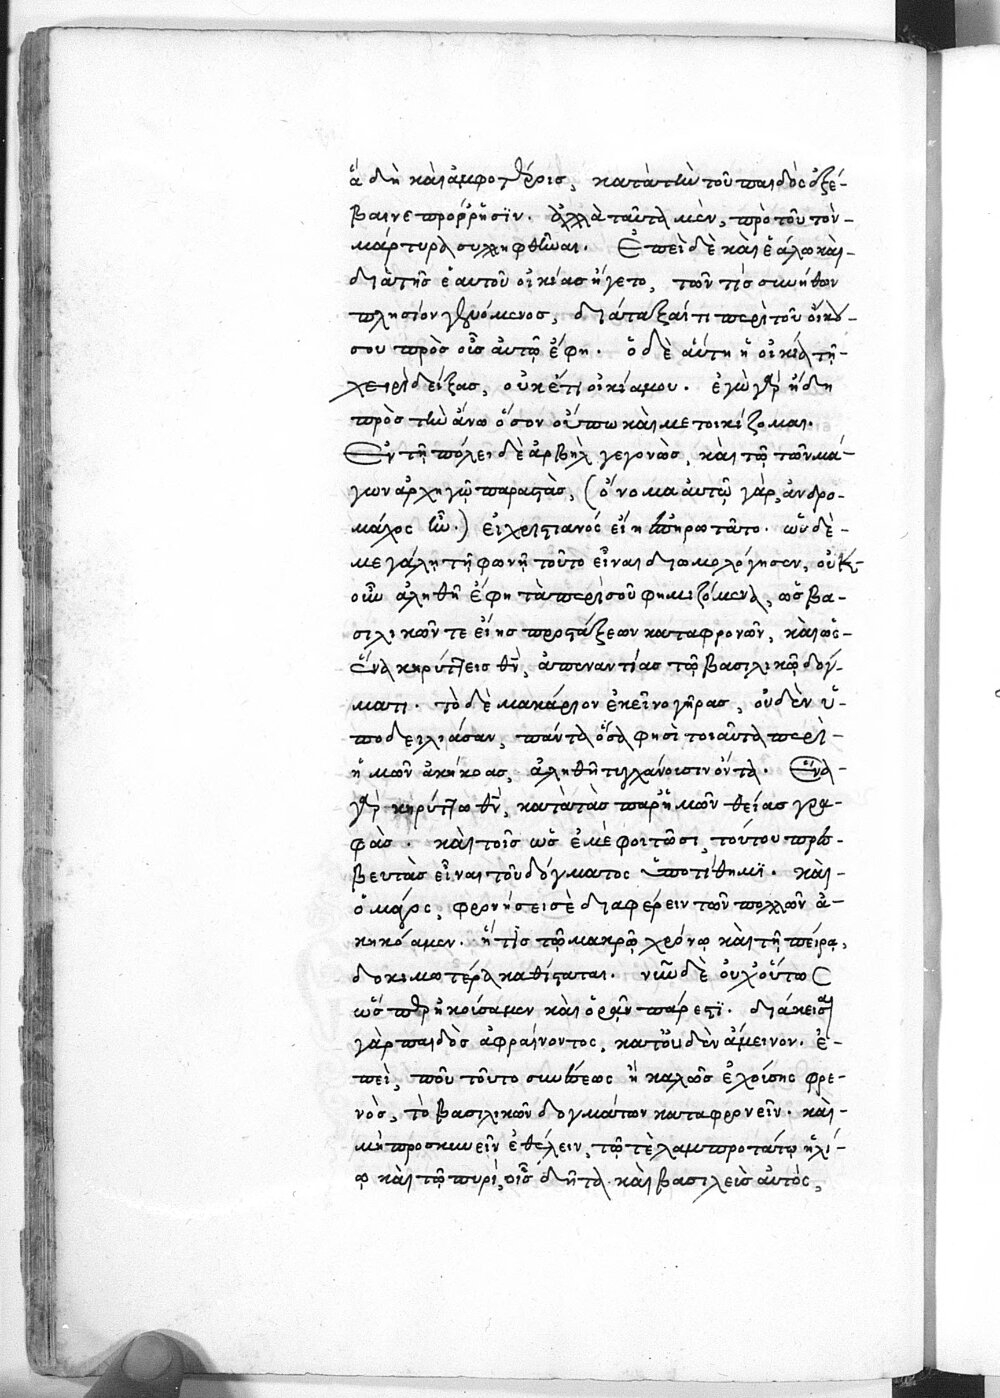 ἃ δὴ καὶ ἀμφοτέροις, κατὰ τὴν τοῦ παιδὸς ἐξέ-
βαινε πρόρρησϊν. ἀλλὰ ταῦτα μὲν, πρὸ τοῦ τὸν-
μάρτυρα συλληφθῆναι. Ἐπεὶ δὲ καὶ ἑάλω καὶ-
διὰ τῆς ἑαυτοῦ οἰκίας ἤγετο, τῶν τίς συνήθων
πλησίον γενόμενος, διάταξαί τι περὶ τοῦ οἴκου-
σου πρὸς οἷς αὐτῷ ἔφη. ὁ δὲ αὕτη ἡ οἰκία τῇ-
χειρὶ δείξας, οὐκέτι οἰκία μου. ἐγὼ γὰρ ἤδη
πρὸς τὴν ἄνω ὅσον οὔπω καὶ μετοικίζομαι.
Ἐν τῇ πόλει δὲ ἀρβὴλ γεγονὼς, καὶ τῷ τῶν μά-
γων ἀρχηγῷ παραστὰς, (ὄνομα αὐτῷ γάρ, ἀνδρο-
μάχος ἦν.) εἰ χριστιανός εἴη ἐπηρωτᾶτο. ὡς δὲ-
μεγάλῃ τῇ φωνῇ τοῦτο εἶναι διωμολόγησεν, οὐκ-
οῦν ἀληθῆ ἔφη τὰ περὶ σοῦ φημιζόμενα, ὡς βα-
σιλικῶν τε εἴης προστάξεων καταφρονῶν, καὶ ὡς-
ἕνα κηρύττεις θν, ἀπεναντίας τῷ βασιλικῷ δόγ-
ματι. τὸ δὲ μακάριον ἐκεῖνο γῆρας, οὐδὲν ὑ-
ποδειλιάσαν, πάντα ὅσα φησὶ τοιαῦτα περὶ-
ἡμῶν ἀκήκοας, ἀληθῆ τυγχάνουσιν ὄντα. Ἕνα-
γὰρ κηρύττω θν, κατὰ τὰς παρ' ἡμῶν θείας γρα-
φάς. καὶ τοῖς ὡς ἐμὲ φοιτῶσι, τούτου πρεσ-
βευτὰς εἶναι τοῦ δόγματος ὑποτίθημϊ. καὶ-
ὁ μάγος, φρονήσει σὲ διαφέρειν τῶν πολλῶν ἀ-
κηκόαμεν. ἥτις τῷ μακρῷ χρόνῳ καὶ τῇ πείρᾳ,
δοκιμωτέρα καθίσταται. νῦν δὲ οὐχ οὕτως
ὥσπερ ἠκούσαμεν καὶ ὁρᾶν πάρεστϊ. διάκεισαι
γὰρ παιδὸς ἀφραίνοντος, κατ' οὐδὲν ἄμεινον. ἐ-
πεὶ, ποῦ τοῦτο συνέσεως ἢ καλῶς ἐχούσης φρε-
νὸς, τὸ βασιλικῶν δογμάτων καταφρονεῖν. καὶ-
μὴ προσκυνεῖν ἐθέλειν, τῷ τὲ λαμπροτάτῳ ἡλί-
ῳ καὶ τῷ πυρί, οἷς δῆτα καὶ βασιλεὺς αὐτὸς,